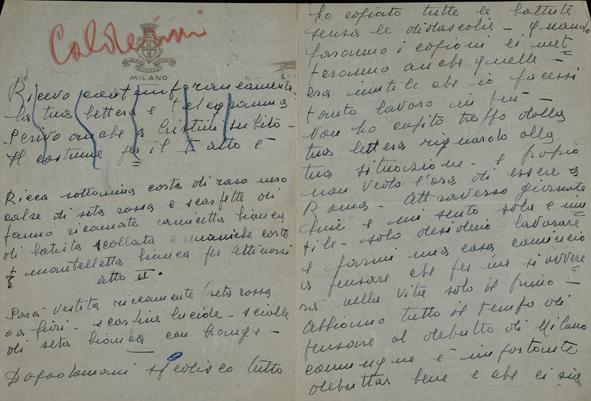 Calderini
MILANO
Ricevo contemporaneamente
la tua lettera e telegramma
Scrivo anche a Cristini subito -
Il costume per il I atto è
Ricca sottanina corta di raso nero
calze di seta rossa e scarpette di
panno ricamate camicetta bianca
di batista scollata e maniche corte
e mantelletta bianca per
atto II.
Sarà vestita riccamente seta rossa
o a fiori - scarpine lucide - scialle
di seta bianca con frange -
Dopodomani spedisco tutto
ho copiato tutte le battute
senza le didascalie - quando
faranno i copioni ci met
teranno anche quelle -
era inutile che io facessi
tanto lavoro in più -
Non ho capito troppo dalla
tua lettera riguardo alla
tua situazione - e proprio
non vedo l'ora di essere a
Roma - Attraverso giornate
e mi sento sola e inu
tile - solo desiderio - lavorare
e farmi una casa comincio
a pensare che per me si avvere
rà nella vita solo il primo -
Abbiamo tutto il tempo di
pensare al debutto di Milano
comunque è importante
debuttar bene e che ci sia